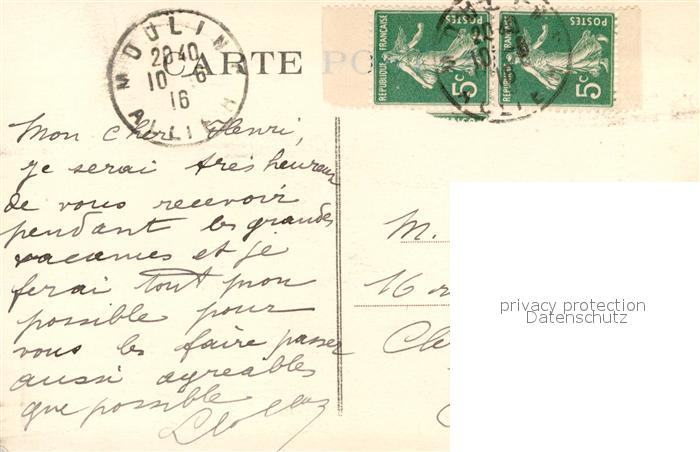 MOULINS
20 40
10 - 6
16
ALLIER
CARTE PO
RÉPUBLIQUE FRANÇAISE
POSTES
5c
RÉPUBLIQUE FRANÇAISE
POSTES
5c
Mon cher Henri,
je serai très heureux
de vous recevoir
pendant les grandes
vacances et je
ferai tout mon
possible pour
vous les faire passer
aussi agréables
que possible
M.
privacy protection
Datenschutz